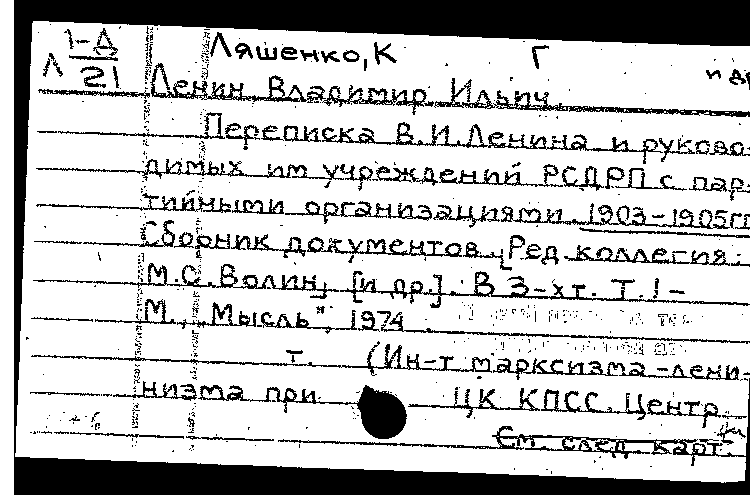 Л 1-Д/21
Ляшенко, К Г и др
Ленин, Владимир Ильич.
Переписка В.И.Ленина и руково-
димых им учреждений РСДРП с пар-
тийными организациями. 1903-1905гг
Сборник документов. [Ред. коллегия:
М.С. Волин, [и др.]. В 3-х т. Т.1-
М., „Мысль", 1974.
т. (Ин-т марксизма-лени-
низма при ЦК КПСС. Центр.
См. след. карт.